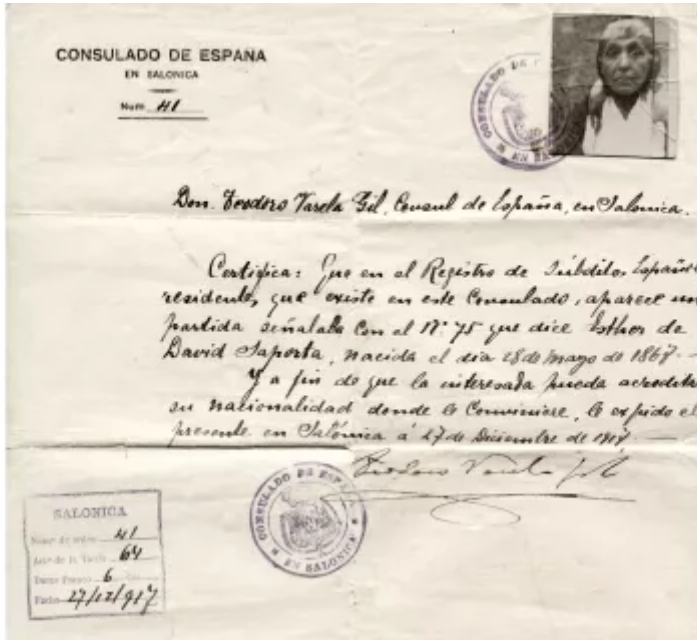 CONSULADO DE ESPAÑA
EN SALONICA
Num. 41
CONSULADO DE
EN SA
Don Teodoro Varela Gil, Consul de España, en Salonica.
Certifica: Que en el Registro de Súbditos Español
residentes, que existe en este Consulado, aparece un
partida señalada con el N.º 75 que dice Esther de
David Saporta, nacida el dia 28 de Mayo de 1867.
Y a fin de que la interesada pueda acredita
su nacionalidad donde le Conviniere, le expido el
presente en Salónica á 27 de Diciembre de 1917.
Teodoro Varela Gil
CONSULADO DE ESPAÑA
EN SALONICA
SALONICA
Núm. de orden 41
de la Tarifa 64
6
Fecha 27/12/917